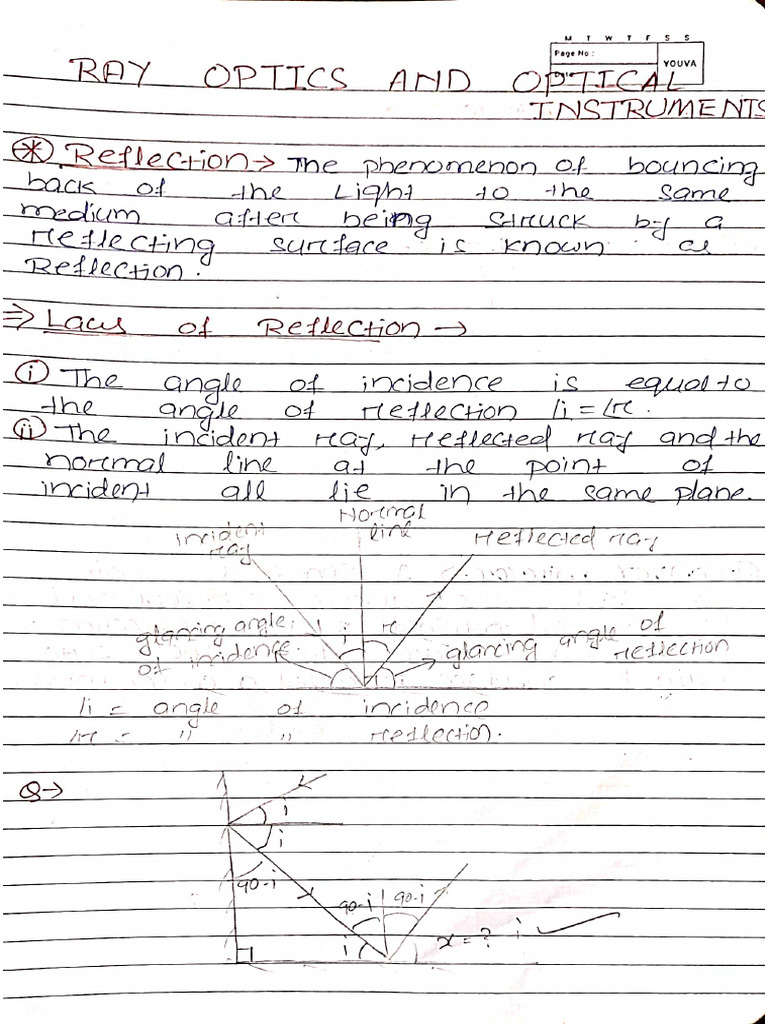 M T W T F S S
Page No :
YOUVA
RAY OPTICS AND OPTICAL
INSTRUMENTS
* Reflection → The phenomenon of bouncing
back of the Light to the same
medium after being struck by a
reflecting surface is known as
Reflection.
⇒ Laws of Reflection →
(i) The angle of incidence is equal to
the angle of reflection ∠i = ∠r.
(ii) The incident ray, reflected ray and the
normal line at the point of
incident all lie in the same plane.
Incident ray
Normal line
Reflected ray
i r
glancing angle of incidence.
glancing angle of reflection
∠i = angle of incidence
∠r = " " reflection.
Q→
i
i
90-i
90-i 90-i
i
x = ? i ✓